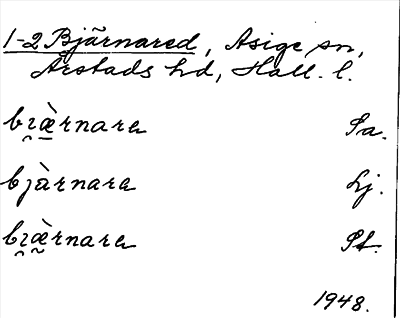 1-2 Bjärnared, Asige sn,
Årstads hd, Hall. l.
bɪ̯æ̠̀rnara Sa.
bjàrnara Lj.
bɪ̯æ̰̀rnara St.
1948.